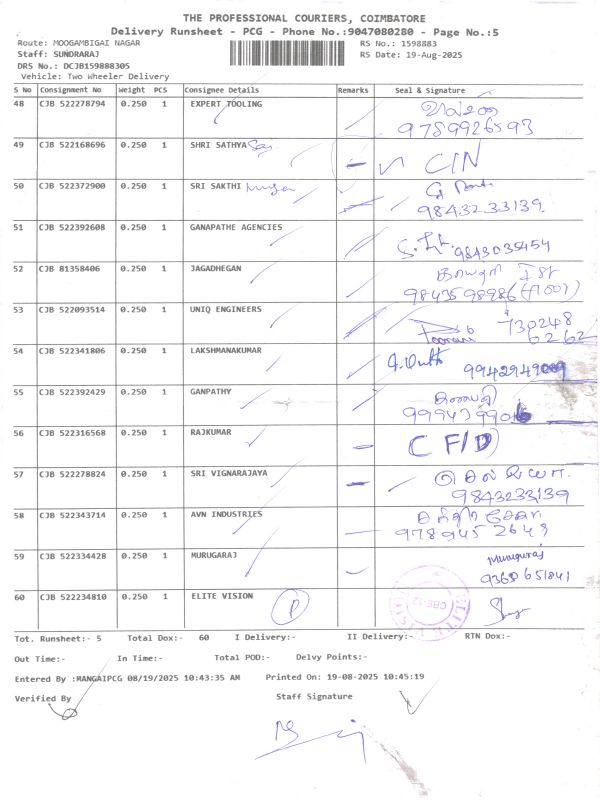 THE PROFESSIONAL COURIERS, COIMBATORE
Delivery Runsheet - PCG - Phone No.:9047080280 - Page No.:5
Route: MOOGAMBIGAI NAGAR RS No.: 1598883
Staff: SUNDRARAJ RS Date: 19-Aug-2025
DRS No.: DCJB159888305
Vehicle: Two Wheeler Delivery
S No Consignment No Weight PCS Consignee Details Remarks Seal & Signature
48 CJB 522278794 0.250 1 EXPERT TOOLING
9789926593
49 CJB 522168696 0.250 1 SHRI SATHYA Sai CIN
50 CJB 522372900 0.250 1 SRI SAKTHI
9843233139
51 CJB 522392608 0.250 1 GANAPATHE AGENCIES
9843035454
52 CJB 81358406 0.250 1 JAGADHEGAN
9843598986
53 CJB 522093514 0.250 1 UNIQ ENGINEERS 730248
6262
54 CJB 522341806 0.250 1 LAKSHMANAKUMAR
55 CJB 522392429 0.250 1 GANPATHY
56 CJB 522316568 0.250 1 RAJKUMAR C F/D
57 CJB 522278824 0.250 1 SRI VIGNARAJAYA
9843233139
58 CJB 522343714 0.250 1 AVN INDUSTRIES
978945 2649
59 CJB 522334428 0.250 1 MURUGARAJ Murugaraj
9360651841
60 CJB 522234810 0.250 1 ELITE VISION P
Tot. Runsheet:- 5 Total Dox:- 60 I Delivery:- II Delivery:- RTN Dox:-
Out Time:- In Time:- Total POD:- Delvy Points:-
Entered By :MANGAIPCG 08/19/2025 10:43:35 AM Printed On: 19-08-2025 10:45:19
Verified By Staff Signature